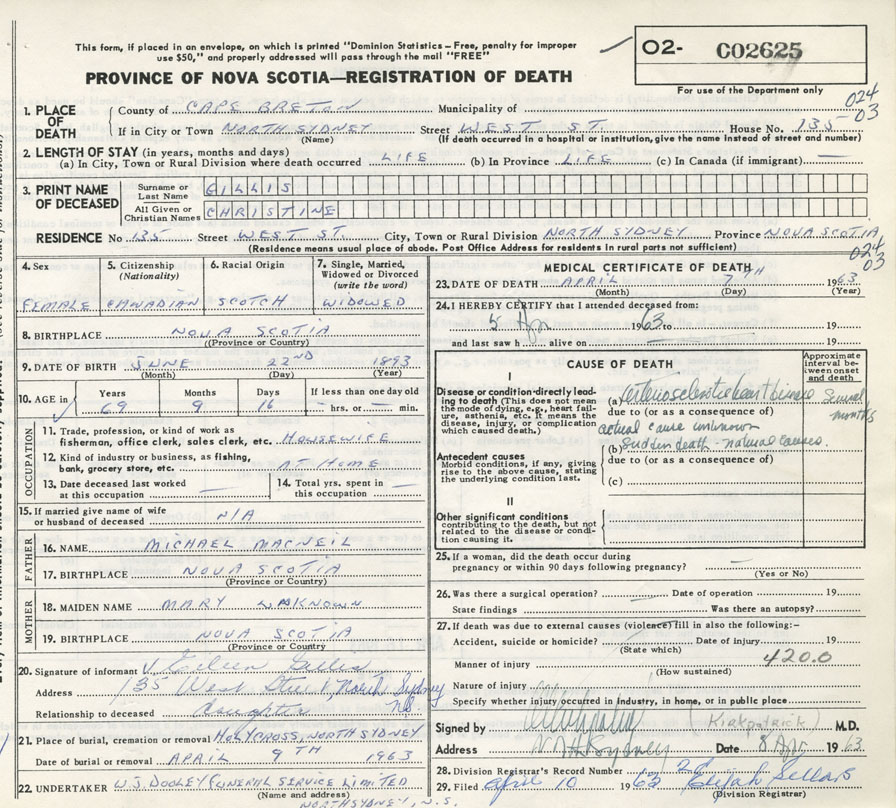 This form, if placed in an envelope, on which is printed "Dominion Statistics – Free, penalty for improper
use $50," and properly addressed will pass through the mail "FREE"
PROVINCE OF NOVA SCOTIA—REGISTRATION OF DEATH
O2- C02625
For use of the Department only
024
03
1. PLACE OF DEATH
County of CAPE BRETON Municipality of
If in City or Town NORTH SYDNEY Street WEST ST. House No. 135
(Name) (If death occurred in a hospital or institution, give the name instead of street and number)
2. LENGTH OF STAY (in years, months and days)
(a) In City, Town or Rural Division where death occurred LIFE (b) In Province LIFE (c) In Canada (if immigrant) —
3. PRINT NAME OF DECEASED
Surname or Last Name GILLIS
All Given or Christian Names CHRISTINE
RESIDENCE No 135 Street WEST ST. City, Town or Rural Division NORTH SYDNEY Province NOVA SCOTIA
(Residence means usual place of abode. Post Office Address for residents in rural parts not sufficient)
024
03
4. Sex
FEMALE
5. Citizenship (Nationality)
CANADIAN
6. Racial Origin
SCOTCH
7. Single, Married, Widowed or Divorced (write the word)
WIDOWED
8. BIRTHPLACE NOVA SCOTIA
(Province or Country)
9. DATE OF BIRTH JUNE 22ND 1893
(Month) (Day) (Year)
10. AGE in Years Months Days If less than one day old
69 9 16 — hrs. or — min.
OCCUPATION
11. Trade, profession, or kind of work as
fisherman, office clerk, sales clerk, etc. HOUSEWIFE
12. Kind of industry or business, as fishing,
bank, grocery store, etc. AT HOME
13. Date deceased last worked
at this occupation —
14. Total yrs. spent in
this occupation —
15. If married give name of wife
or husband of deceased N/A
FATHER
16. NAME MICHAEL MACNEIL
17. BIRTHPLACE NOVA SCOTIA
(Province or Country)
MOTHER
18. MAIDEN NAME MARY UNKNOWN
19. BIRTHPLACE NOVA SCOTIA
(Province or Country
20. Signature of informant Eileen Gillis
Address 135 West Street, North Sydney
NS
Relationship to deceased Daughter
21. Place of burial, cremation or removal HOLY CROSS, NORTH SYDNEY
Date of burial or removal APRIL 9TH 1963
22. UNDERTAKER W.J. DOOLEY FUNERAL SERVICE LIMITED
(Name and address)
NORTH SYDNEY, N.S.
MEDICAL CERTIFICATE OF DEATH
23. DATE OF DEATH APRIL 7TH 1963
(Month) (Day) (Year)
24. I HEREBY CERTIFY that I attended deceased from:
5 Apr 1963 to 19
and last saw h alive on 19
CAUSE OF DEATH
Approximate interval between onset and death
I
Disease or condition directly leading to death (This does not mean
the mode of dying, e.g., heart failure, asthenia, etc. It means the
disease, injury, or complication
which caused death.)
(a) arteriosclerotic heart disease several months
due to (or as a consequence of)
actual cause unknown
(b) sudden death - natural causes.
due to (or as a consequence of)
(c)
Antecedent causes
Morbid conditions, if any, giving
rise to the above cause, stating
the underlying condition last.
II
Other significant conditions
contributing to the death, but not
related to the disease or condition causing it.
25. If a woman, did the death occur during
pregnancy or within 90 days following pregnancy? —
(Yes or No)
26. Was there a surgical operation? — Date of operation 19
State findings Was there an autopsy?
27. If death was due to external causes (violence) fill in also the following:–
Accident, suicide or homicide? Date of injury 19
(State which)
420.0
Manner of injury
(How sustained)
Nature of injury
Specify whether injury occurred in industry, in home, or in public place
Signed by (Kirkpatrick) M.D.
Address N. Sydney Date 8 Apr 1963
28. Division Registrar's Record Number
29. Filed April 10 1963 Elijah Sellars
(Division Registrar)